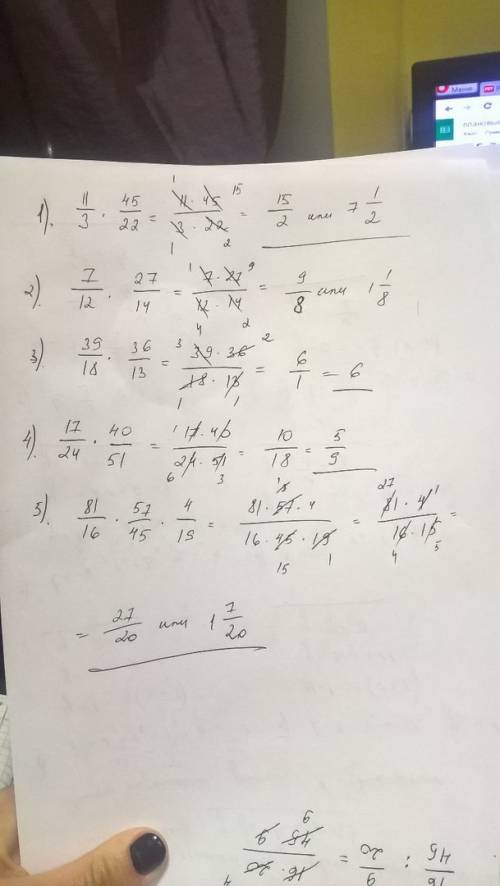 Меню
1). 11/3 · 45/22 = 11·45/3·22 = 15/2 или 7 1/2
2). 7/12 · 27/14 = 7·27/12·14 = 9/8 или 1 1/8
3). 39/18 · 36/13 = 39·36/18·13 = 6/1 = 6
4). 17/24 · 40/51 = 17·40/24·51 = 10/18 = 5/9
5). 81/16 · 57/45 · 4/19 = 81·57·4/16·45·19 = 81·4/16·15 =
= 27/20 или 1 7/20